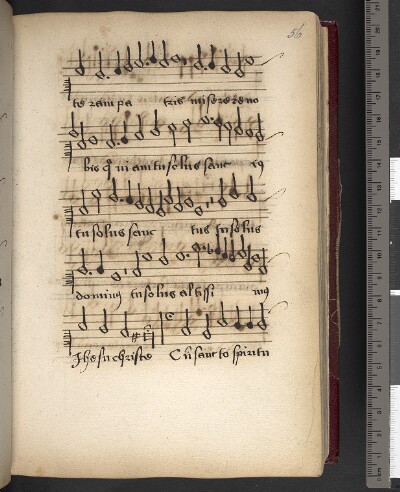 56
te ram pa tris miserere no
bis q̄ ni am tu solus sanc t9
tu solus sanc tus tu solus
domin9 tu solus al tissi m9
Jhesu christe Cū sanc to spiritu